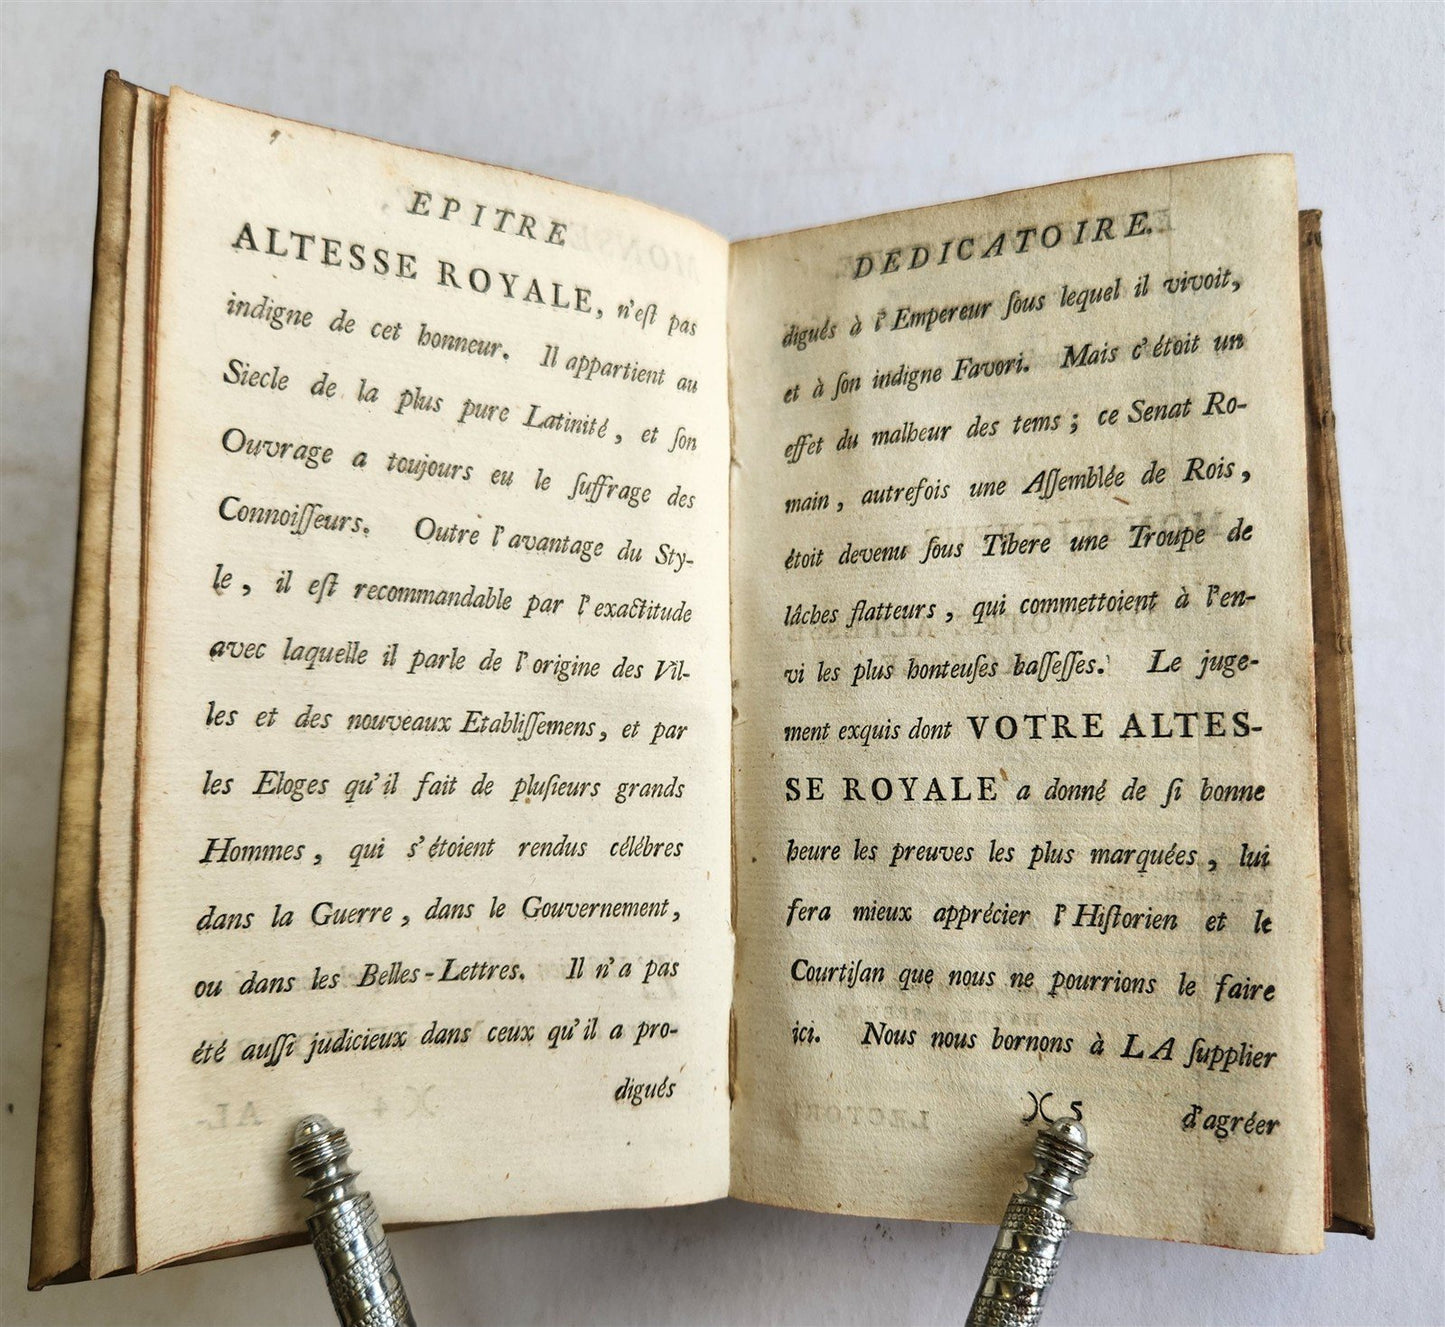 EPITRE
ALTESSE ROYALE, n'eſt pas
indigne de cet honneur. Il appartient au
Siecle de la plus pure Latinité, et ſon
Ouvrage a toujours eu le ſuffrage des
Connoiſſeurs. Outre l'avantage du Sty-
le, il eſt recommandable par l'exactitude
avec laquelle il parle de l'origine des Vil-
les et des nouveaux Etabliſſemens, et par
les Eloges qu'il fait de pluſieurs grands
Hommes, qui s'étoient rendus célébres
dans la Guerre, dans le Gouvernement,
ou dans les Belles-Lettres. Il n'a pas
été auſſi judicieux dans ceux qu'il a pro-
digués
DEDICATOIRE.
digués à l'Empereur ſous lequel il vivoit,
et à ſon indigne Favori. Mais c'étoit un
effet du malheur des tems; ce Senat Ro-
main, autrefois une Aſſemblée de Rois,
étoit devenu ſous Tibere une Troupe de
lâches flatteurs, qui commettoient à l'en-
vi les plus honteuſes baſſeſſes. Le juge-
ment exquis dont VOTRE ALTES-
SE ROYALE a donné de ſi bonne
heure les preuves les plus marquées, lui
fera mieux apprécier l'Hiſtorien et le
Courtiſan que nous ne pourrions le faire
ici. Nous nous bornons à LA ſupplier
)( 5 d'agréer